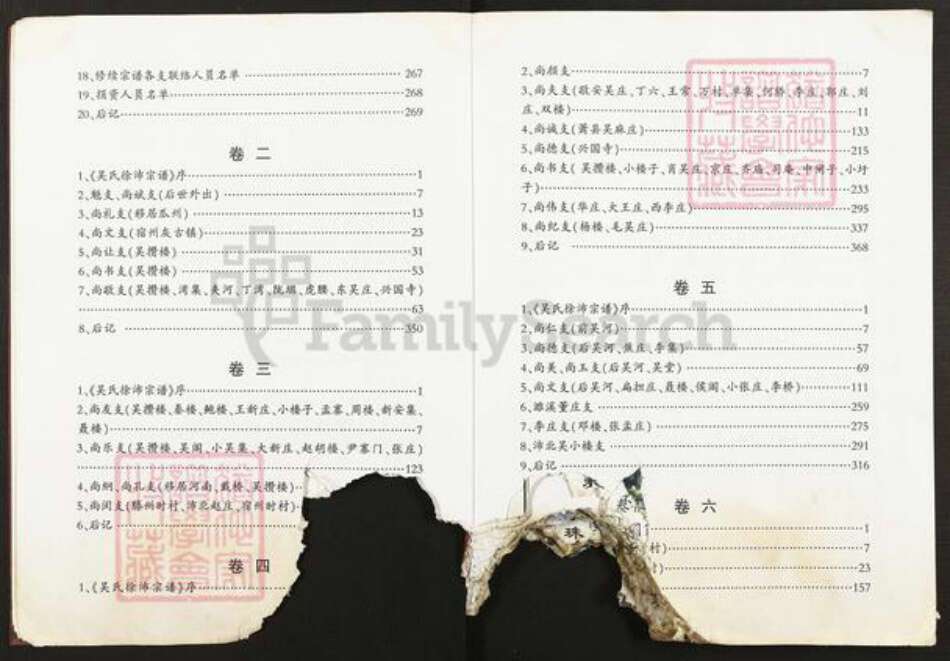 18、修续宗谱各支联络人员名单 267
19、捐资人员名单 268
20、后记 269
卷 二
1、《吴氏徐沛宗谱》序 1
2、魁支、尚斌支(后世外出) 7
3、尚礼支(移居瓜州) 13
4、尚文支(宿州灰古镇) 23
5、尚让支(吴攒楼) 31
6、尚书支(吴攒楼) 53
7、尚敬支(吴攒楼、湾集、夹河、丁湾、陇堌、虎腰、东吴庄、兴国寺)
63
8、后记 350
卷 三
1、《吴氏徐沛宗谱》序 1
2、尚友支(吴攒楼、秦楼、鲍楼、王新庄、小楼子、孟寨、周楼、新安集、
聂楼) 7
3、尚乐支(吴攒楼、吴阁、小吴集、大新庄、赵胡楼、尹寨门、张庄)
123
4、尚纲、尚孔支(移居河南、戴桥、吴攒楼)
5、尚闵支(滕州时村、沛北赵庄、宿州时村)
6、后记
卷 四
1、《吴氏徐沛宗谱》序
2、尚颜支 7
3、尚夫支(敬安吴庄、丁六、王常、万村、单集、何桥、李庄、郭庄、刘
庄、双楼) 11
4、尚诚支(萧县吴麻庄) 133
5、尚德支(兴国寺) 215
6、尚书支(吴攒楼、小楼子、肖吴庄、宗庄、齐庙、司庵、中闸子、小圩
子) 233
7、尚伟支(华庄、大王庄、西李庄) 295
8、尚纪支(杨楼、毛吴庄) 337
9、后记 368
卷 五
1、《吴氏徐沛宗谱》序 1
2、尚仁支(前吴河) 7
3、尚德支(后吴河、焦庄、李集) 57
4、尚美、尚玉支(后吴河、吴堂) 69
5、尚文支(后吴河、扁担庄、聂楼、侯阁、小张庄、李桥) 111
6、濉溪董庄支 259
7、李庄支(邓楼、张孟庄) 275
8、沛北吴小楼支 291
9、后记 316
卷 六
1
村) 7
村) 23
157
珠
FamilySearch